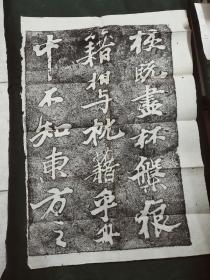 核既盡杯盤狼
籍相與枕籍乎舟
中不知東方之